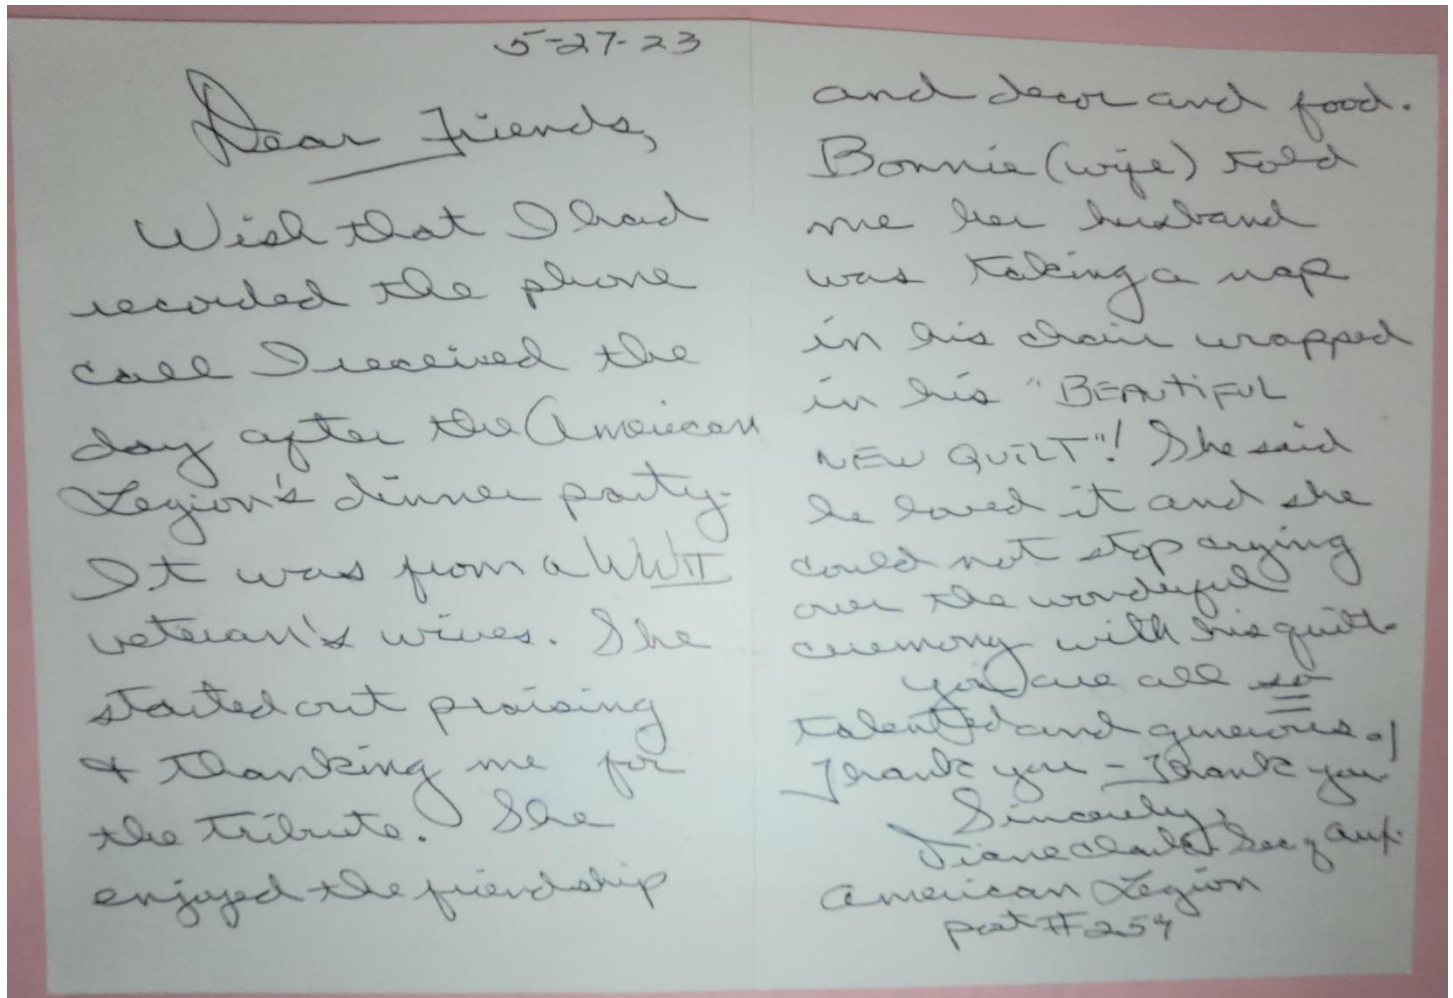 5-27-23
Dear Friends,
Wish that I had
recorded the phone
call I received the
day after the American
Legion's dinner party.
It was from a WWII
veteran's wives. She
started out praising
& thanking me for
the tribute. She
enjoyed the friendship
and decor and food.
Bonnie (wife) told
me her husband
was taking a nap
in his chair wrapped
in his "BEAUTIFUL
NEW QUILT"! She said
he loved it and she
could not stop crying
over the wonderful
ceremony with his quilt.
You are all so
talented and generous.
Thank you - Thank you!
Sincerely,
Diane Clark Sec of Aux.
American Legion
post #254